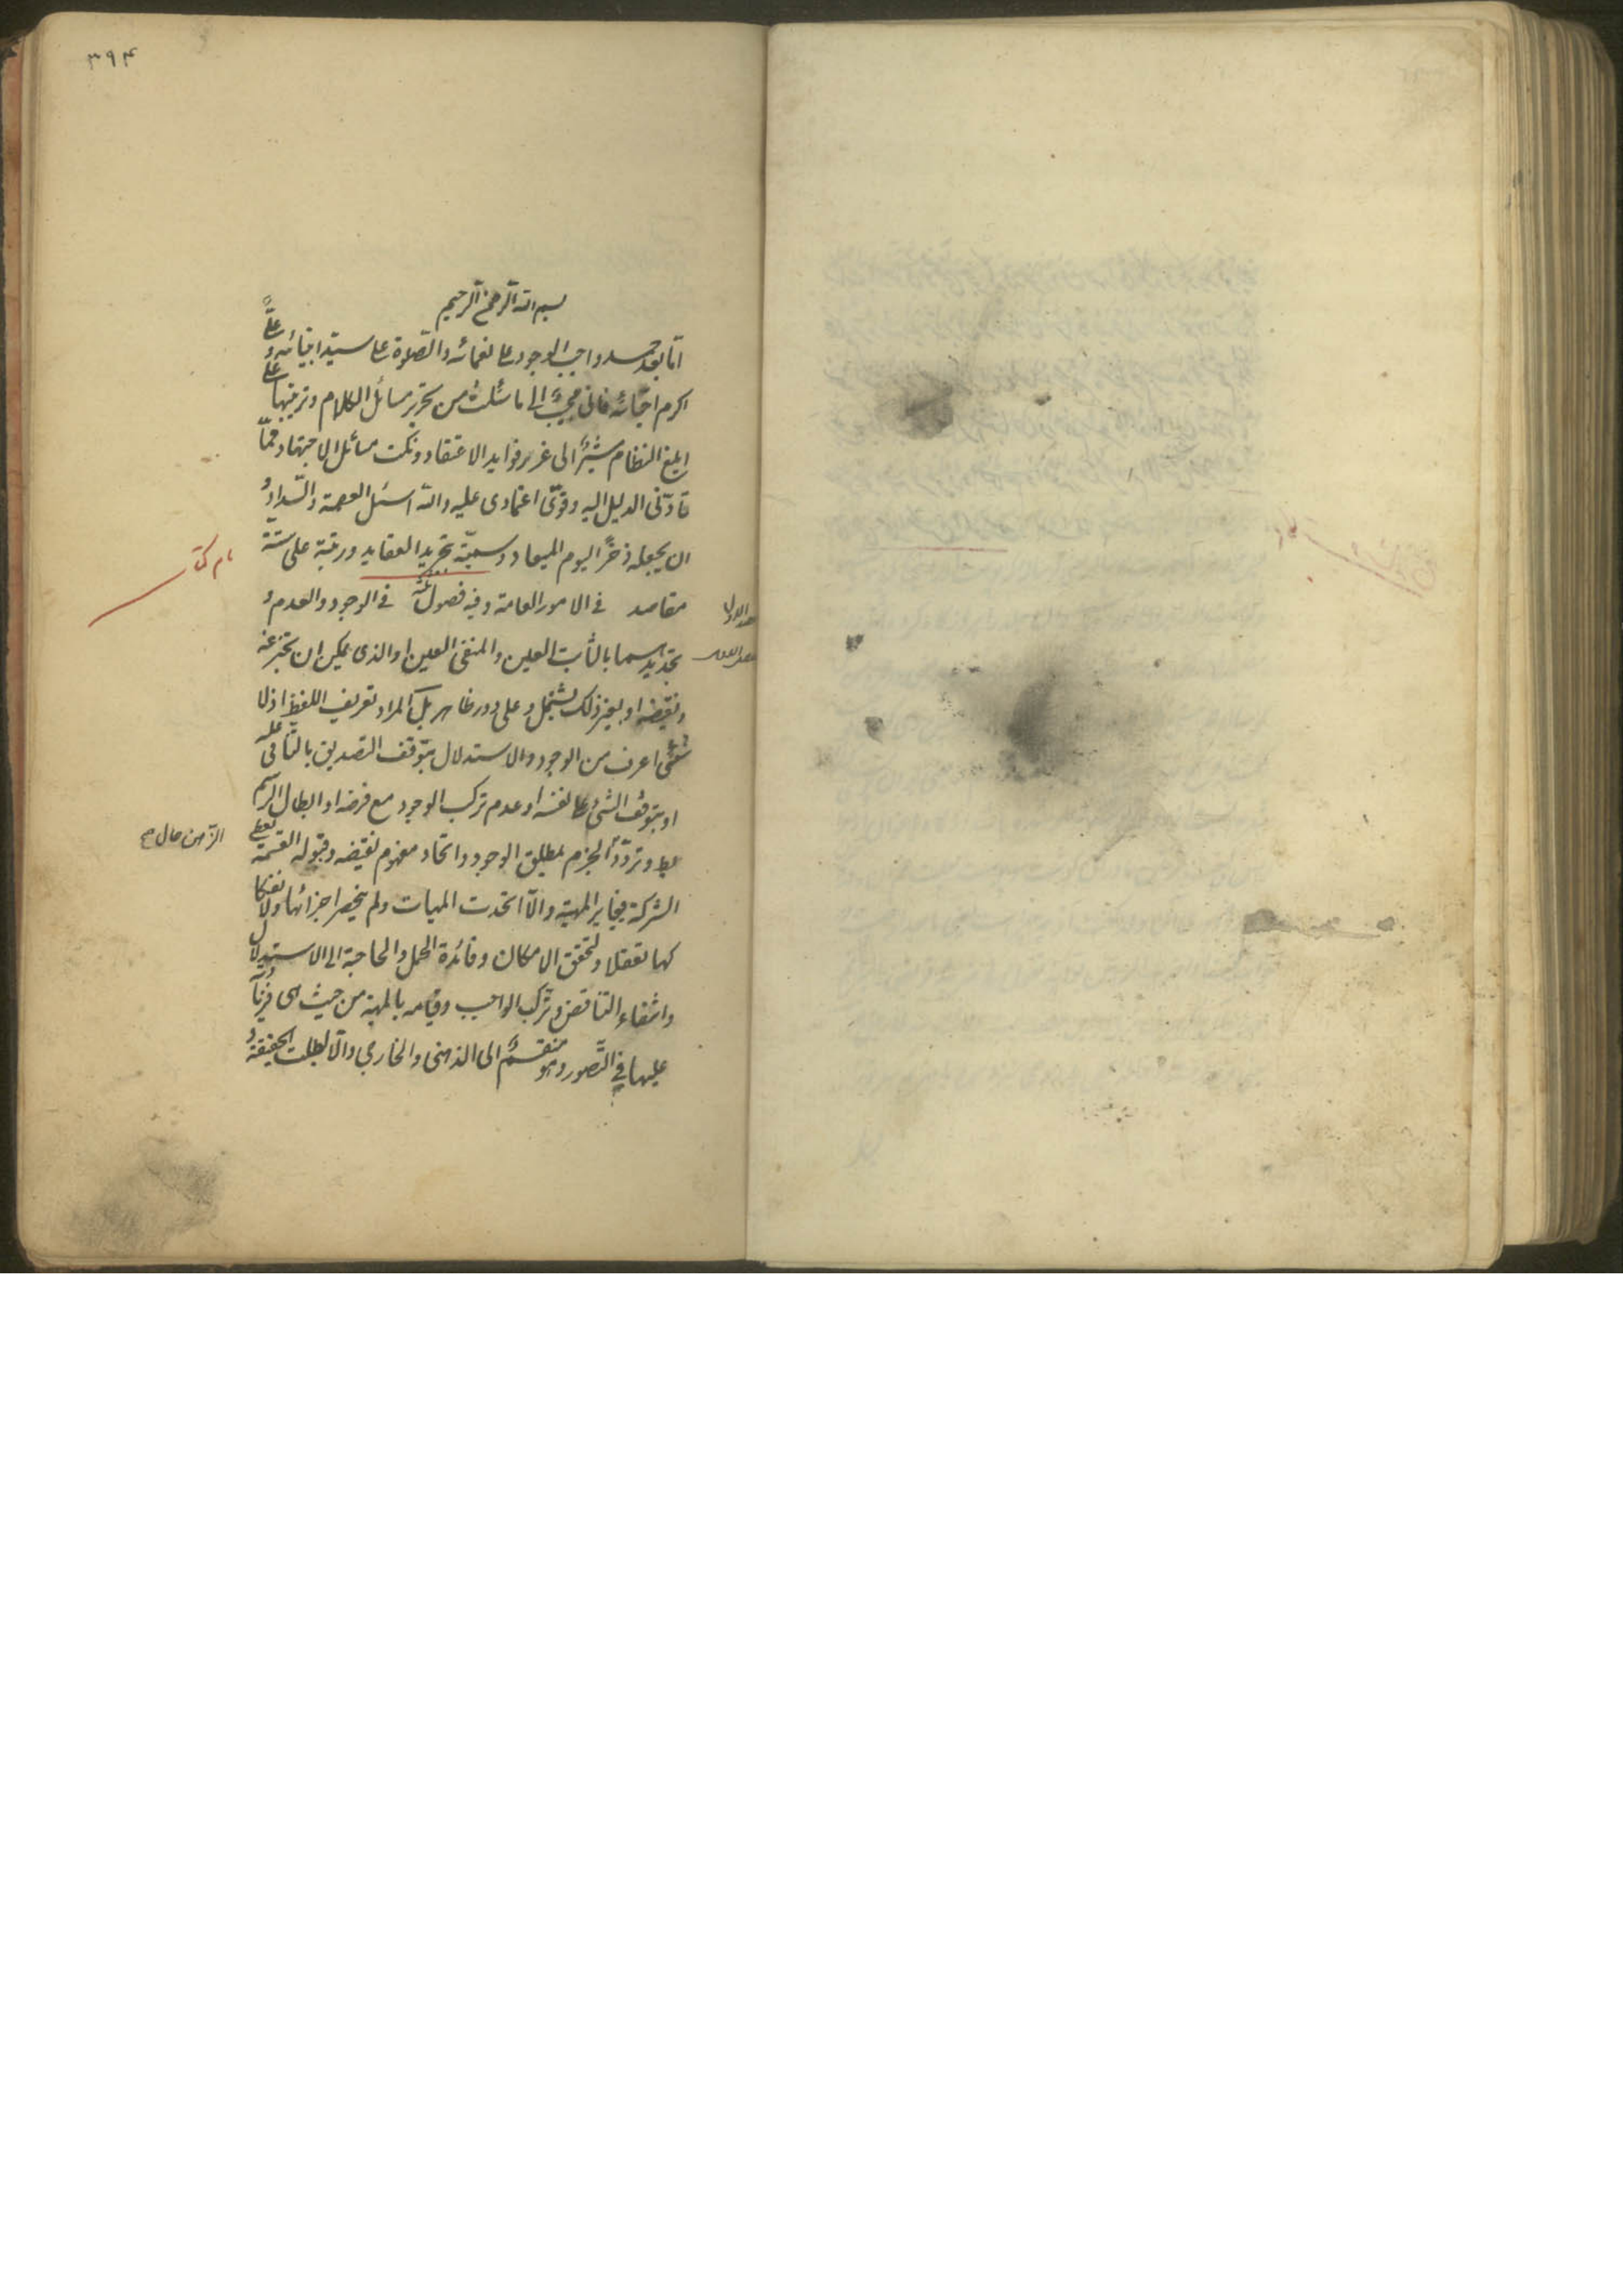 ۳۹۴
بسم الله الرحمن الرحیم
اما بعد حمد واجب الوجود علی نعمائه والصلوة علی سید انبیائه و علی
اکرم احبّائه فانی مجیبٌ الی ما سُئلتُ من تحریر مسائل الکلام وترتیبها علی
ابلغ النظام مشیرًا الی غرر فواید الاعتقاد ونکت مسائل الاجتهاد ممّا
قادنی الدلیل الیه وقوّی اعتمادی علیه والله اسئل العصمة والسّداد و
ان یجعله ذخرًا لیوم المیعاد وسمیّته بتجرید العقاید ورتبته علی ستّة
نام کتاب
مقاصد فی الامور العامة وفیه فصول ثلثة فی الوجود والعدم و
المقصد الاول
تحدیدهما بالثابت العین والمنفی العین او الذی یمکن ان یخبر عنه
الفصل الاول
ونقیضه او بغیر ذلک یشتمل علی دور ظاهر بل المراد تعریف اللفظ اذ لا
شیٔ اعرف من الوجود والاستدلال بتوقف التصدیق بالتنافی علیه
او بتوقف الشیٔ علی نفسه او عدم ترکب الوجود مع فرضه او ابطال الرسم
بط وتردّد الجزم بمطلق الوجود واتحاد مفهوم نقیضه وقبوله القسمة یعطی
الشرکة فیغایر المهیة والّا اتحدت المهیات ولم ینحصر اجزائها ولانفکا
کهما تعقلا ولتحقق الامکان وفائدة الحمل والحاجة الی الاستدلال
وانتفاء التناقض وترکب الواجب وقیامه بالمهیة من حیث هی فزیادته
علیها فی التصور وهو منقسمٌ الی الذهنی والخارجی والّا لبطلت الحقیقة و